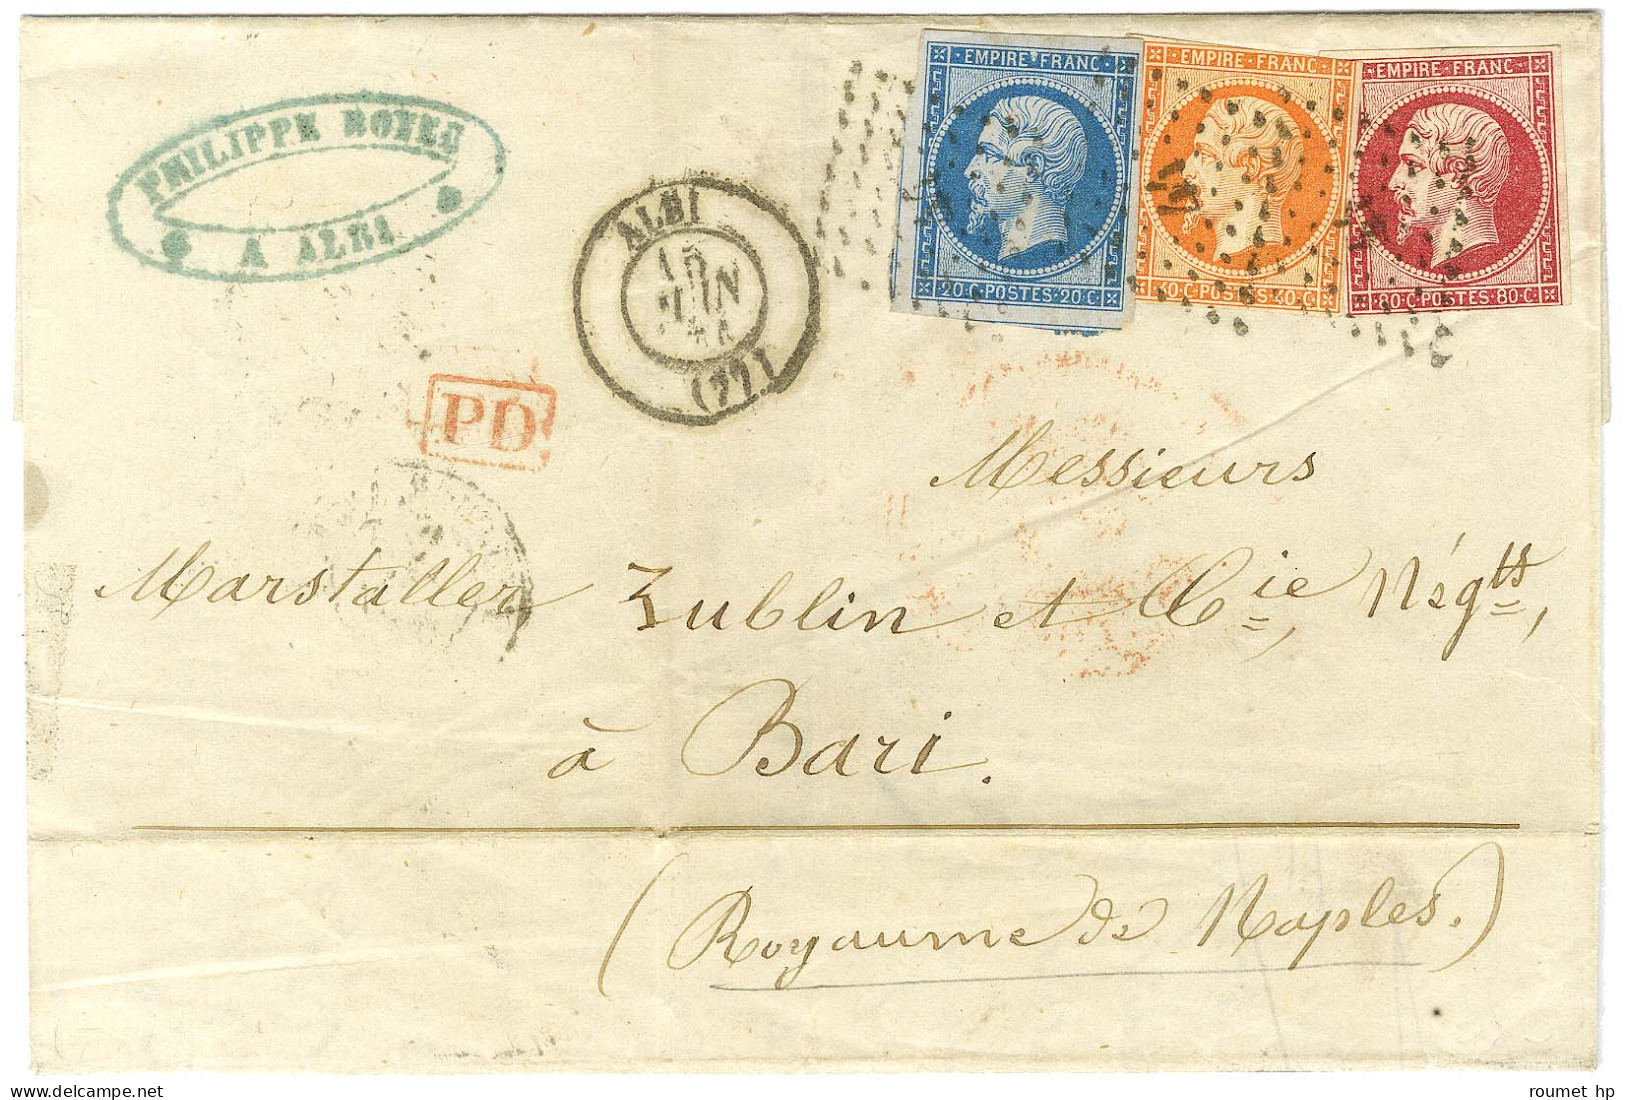 EMPIRE · FRANC ·
20 · C · POSTES · 20 · C ·
EMPIRE · FRANC ·
40 · C · POSTES · 40 · C ·
EMPIRE · FRANC ·
80 · C · POSTES · 80 · C ·
PHILIPPE
A ALBI
ALBI
15
JUIN
(77)
PD
Messieurs
Marstaller Zublin et Cie, Négts,
à Bari.
(Royaume de Naples.)
roumet hp